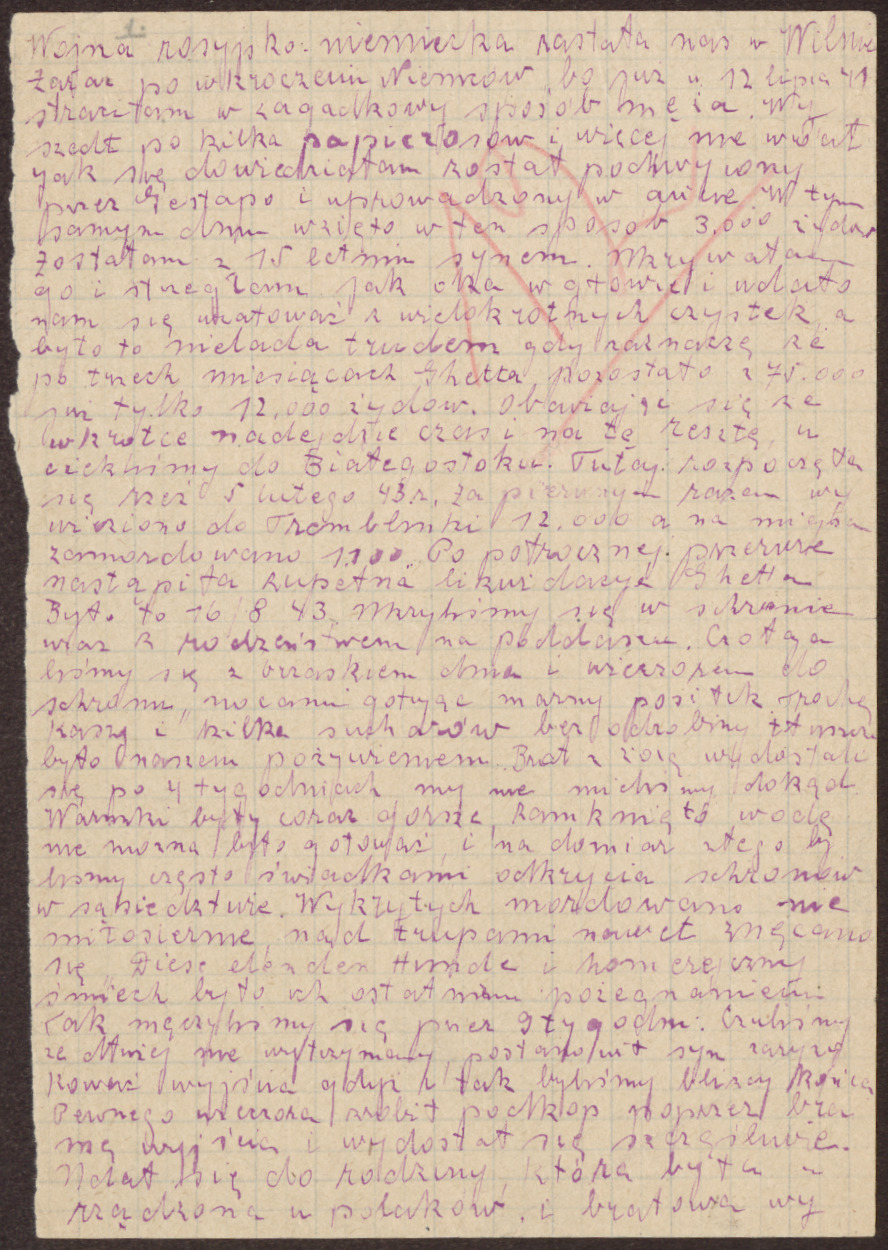 1.
Wojna rosyjsko-niemiecka zastała nas w Wilnie
Zaraz po wkroczeniu Niemców, bo już w 12 lipca 41
straciłam w zagadkowy sposób męża. Wy
szedł po kilka papierosów i więcej nie wrócił
jak się dowiedziałam został pochwycony
przez Gestapo i uprowadzony w W tym
samym dniu wzięto w ten sposób 3,000 żydów
Zostałam z 15 letnim synem. Ukrywałam
go i strzegłam jak oka w głowie i udało
nam się uratować z wielokrotnych czystek, a
było to nielada trudem gdy zaznaczę że
po trzech miesiącach Ghetta pozostało z 75.000
już tylko 12,000 żydów. Obawiając się że
wkrótce nadejdzie czas i na tę resztę, u
ciekliśmy do Białegostoku. Tutaj rozpoczęła
się rzeź 5 lutego 43.r. Za pierwszym razem wy
wieziono do Tremblinki 12.000 a na miejscu
zamordowano 1100. Po półrocznej przerwie
nastąpiła zupełna likwidacja Ghetta
Było to 16/8 43. Ukryliśmy się w schronie
wraz z rodzeństwem na poddaszu. Czołga
liśmy się z brzaskiem dnia i wieczorem do
schronu, nocami gotując marny posiłek trochę
kaszy i kilka sucharów bez odrobiny tłuszczu
było naszem pożywieniem. Brat z żoną wydostali
się po 4 tygodniach my nie mieliśmy dokąd.
Warunki były coraz gorsze, zamknięto wodę
nie można było gotować, i na domiar złego by
liśmy często świadkami odkrycia schronów
w sąsiedztwie. Wykrytych mordowano nie
miłosiernie, nad trupami nawet znęcano
się „Diese elenden Hunde i homeryczny
śmiech było ich ostatniem pożegnaniem
Tak męczyliśmy się przez 9 tygodni. Czuliśmy
że dłużej nie wytrzymamy, postanowił syn zaryzy
kować wyjścia gdyż i tak byliśmy bliscy końca
Pewnego wieczora zrobił podkop poprzez bra
mę wyjścia i wydostał się szczęśliwie.
Udał się do rodziny, która była u
rządzona u polaków, i bratowa wy